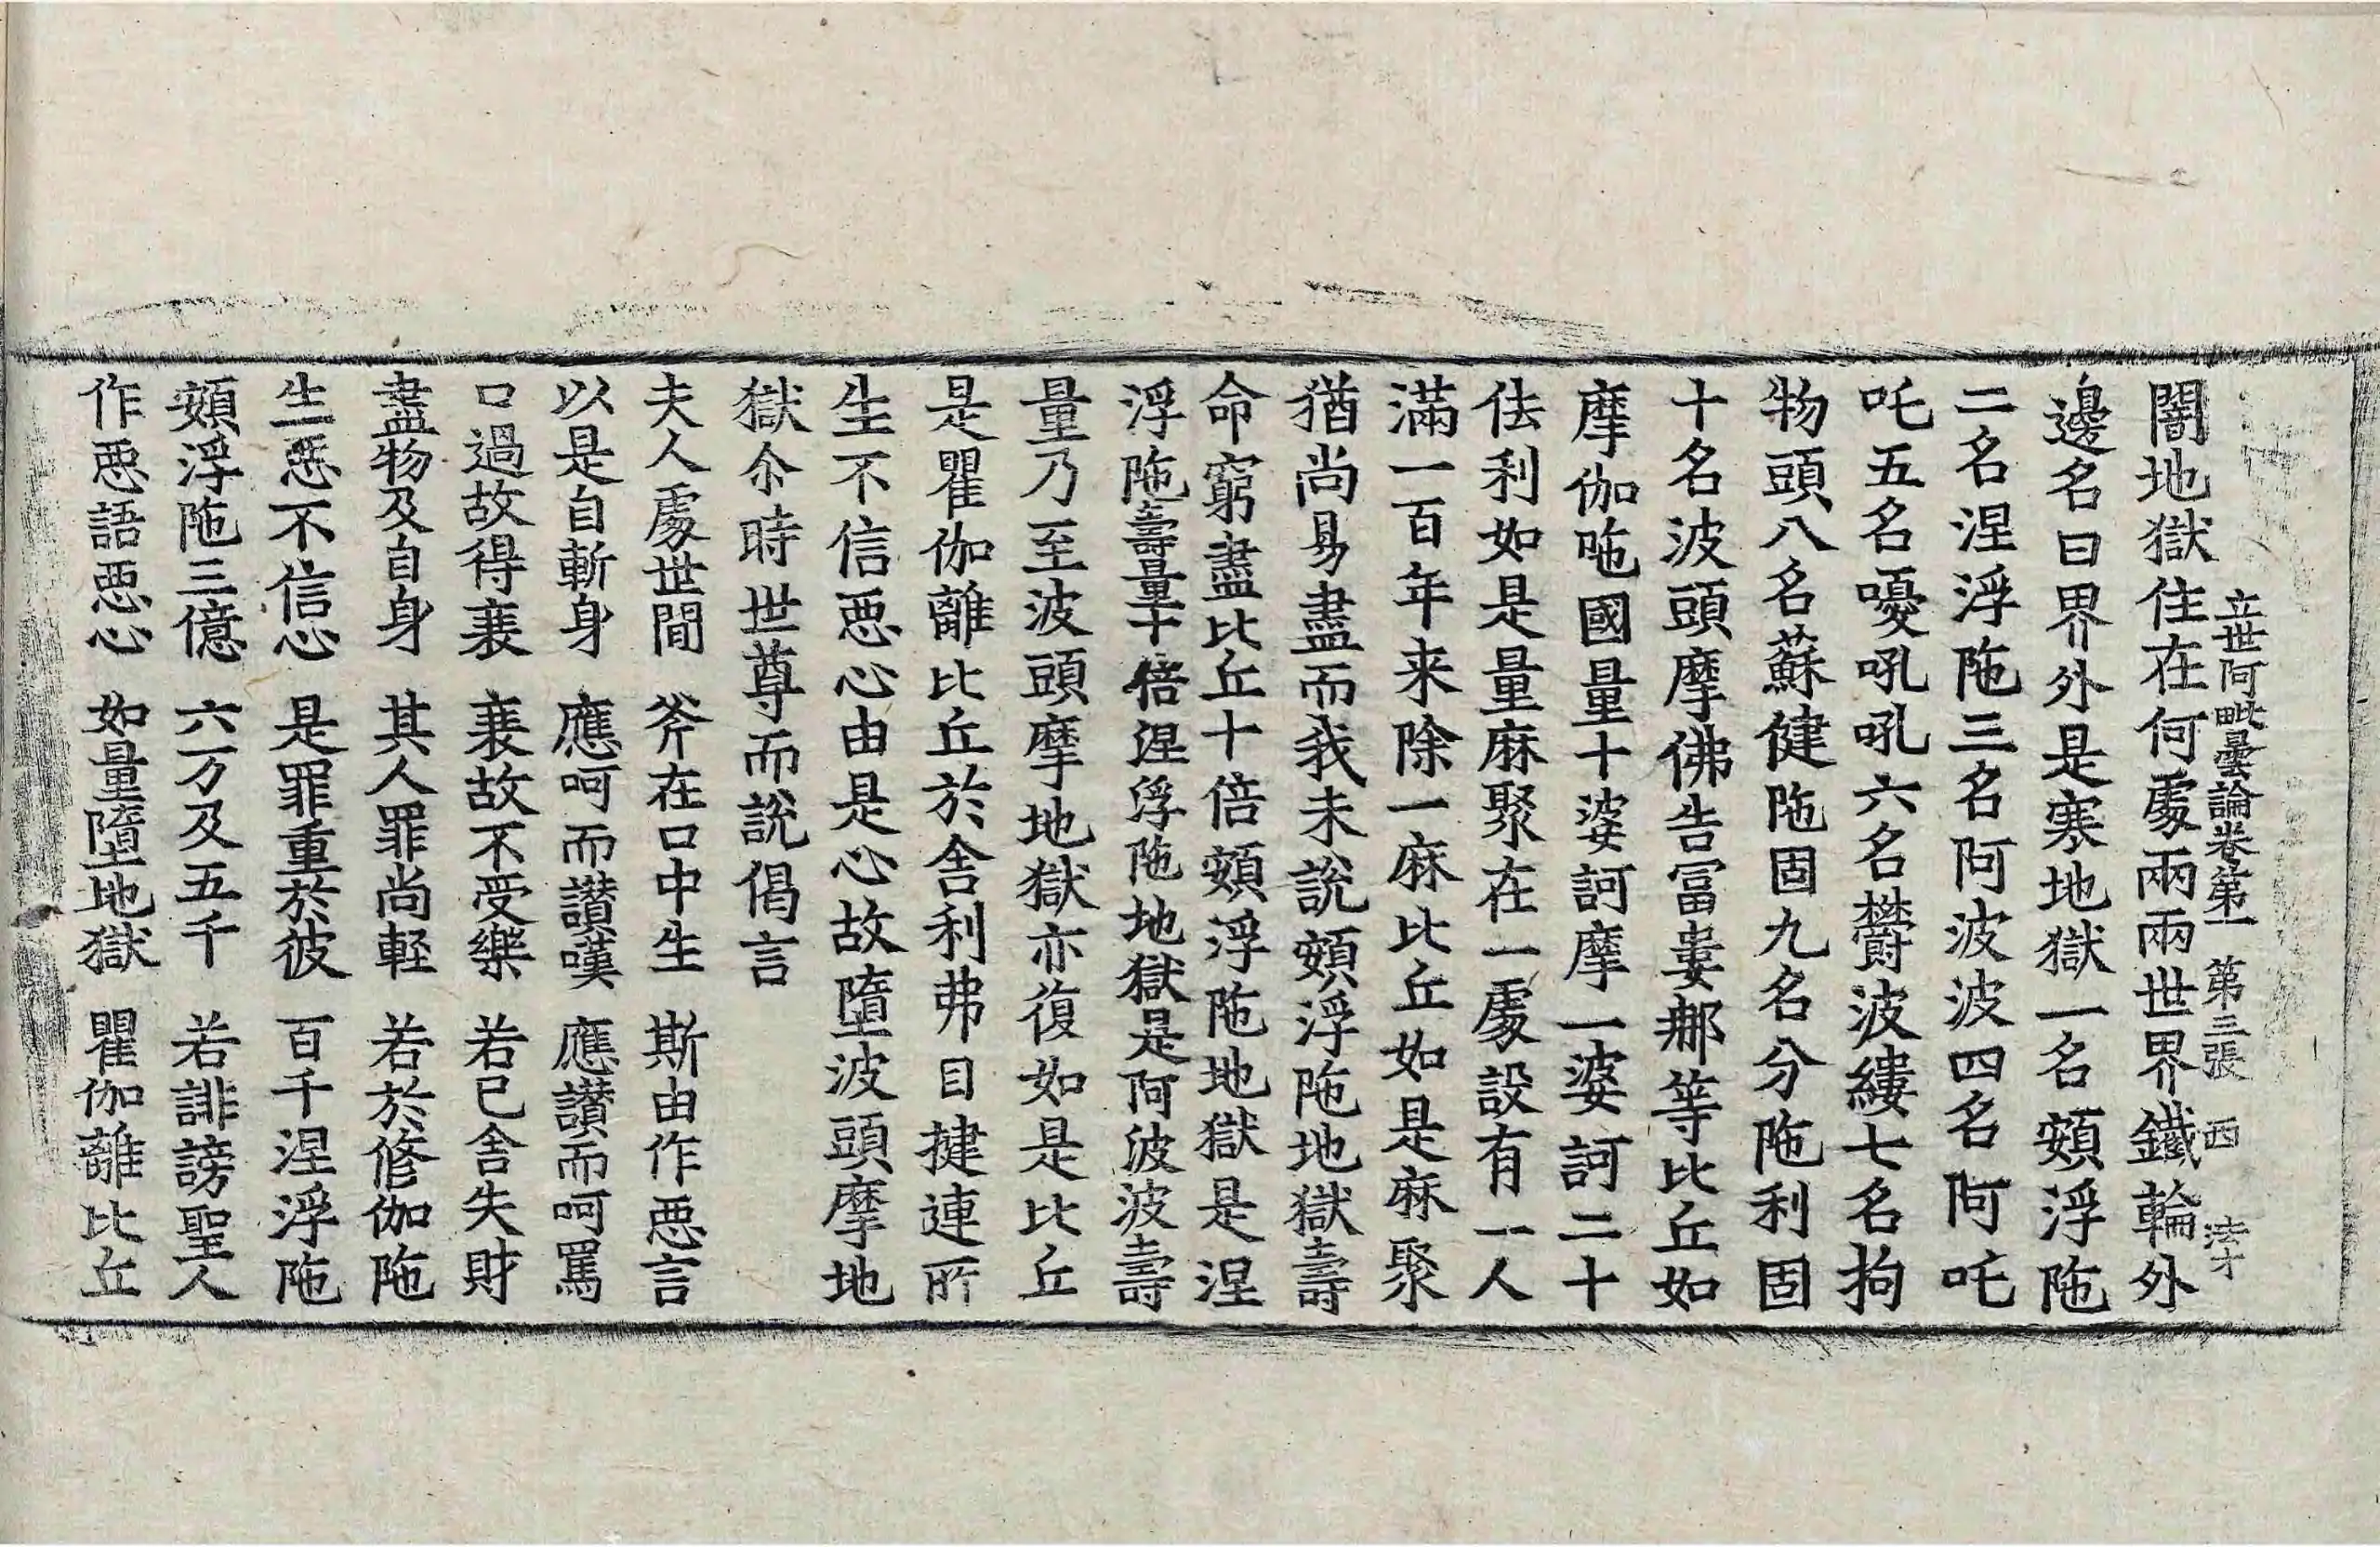 立世阿毗曇論卷第一 第三張 西
闇地獄住在何處兩兩世界鐵輪外
邊名曰界外是寒地獄一名頞浮陁
二名涅浮陁三名阿波波四名阿吒
吒五名嚘吼吼六名欝波縷七名拘
物頭八名蘇健陁固九名分陁利固
十名波頭摩佛告冨婁那等比丘如
摩伽陁國量十婆訶摩一婆訶二十
佉利如是量麻聚在一處設有一人
滿一百年来除一麻比丘如是麻聚
猶尚易盡而我未說頞浮陁地獄壽
命窮盡比丘十倍頞浮陁地獄是涅
浮陁壽量十倍涅浮陁地獄是阿波波壽
量乃至波頭摩地獄亦復如是比丘
是瞿伽離比丘於舍利弗目揵連所
生不信惡心由是心故墮波頭摩地
獄尒時世尊而說偈言
夫人處世間 斧在口中生 斯由作惡言
以是自斬身 應呵而讃嘆 應讃而呵罵
口過故得裹 裹故不受樂 若已舍失財
盡物及自身 其人罪尚輕 若於修伽陁
生惡不信心 是罪重於彼 百千涅浮陁
頞浮陁三億 六万及五千 若誹謗聖人
作惡語惡心 如量墮地獄 瞿伽離比丘